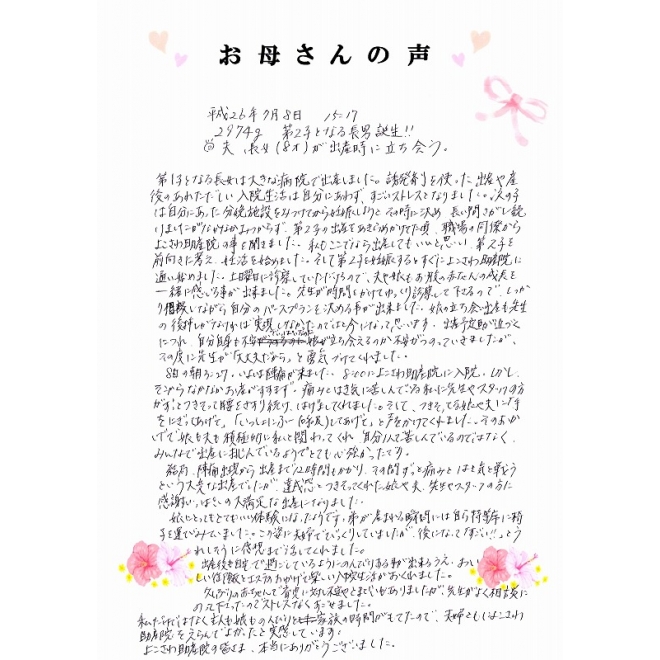 お母さんの声
平成26年7月8日 15:17
2974g 第2子となる長男誕生!!
夫、長女(8才)が出産時に立ち会う。
第1子となる長女は大きな病院で出産しました。誘発剤を使った出産や産
後のあわただしい入院生活は自分にあわず、すごいストレスとなりました。次の子
は自分にあった分娩施設をみつけてから妊娠しようと その時に決め、長い間さがし続け
りましたがなかなかみつからず、第2子の出産をあきらめかけてた頃、職場の同僚から
よこさわ助産院の事を聞きました。私もここでなら出産してもいいと思い、第2子を
前向きに考え、妊活を始めました。そして第2子を妊娠するとすぐによこさわ助産院に
通い始めました。土曜日に診察していただけるので、夫や娘もお腹の赤ちゃんの成長を
一緒に感じる事が出来ました。先生が時間をかけてゆっくり診察して下さるので、しっか
り相談しながら自分のバースプランを決める事が出来ました。娘の立ち会い出産も先生
の後押しがなければ実現しなかったのではと今になって思います。出産予定日が近づく
につれ、自分自身も不安 娘が立ち会えるのか不安がつのっていきましたが、
その度に先生が「大丈夫だから」と勇気づけてくれました。
8日の朝 いよいよ陣痛が来ました。8:00によこさわ助産院に入院。しかし、
そこからなかなかお産がすすまず、痛みとはき気に苦しんでいる私に先生やスタッフの方
がずっとつきそって腰をさすり続け、はげましてくれました。そして、つきそってる娘や夫に「手
をにぎってあげて」「いっしょにふーって してあげて」と声をかけてくれました。そのおか
げで娘も夫も積極的に私と関わってくれ、自分1人で苦しんでいるのではなく、
みんなで出産に挑んでいるようでとても心強かったです。
結局、陣痛出現から出産まで12時間もかかり、その間ずっと痛みとはき気と戦う
という大変な出産でしたが、達成感とつきそってくれた娘や夫、先生やスタッフの方に
感謝いっぱいの大満足な出産になりました。
娘にとってもとてもいい体験になったようです。弟が産まれる瞬間には自ら特等席に椅
子を運びみていました。この姿に夫婦でびっくりしていましたが、後になって「すごい!!」とう
れしそうに何度も話してくれました。
出産後も自宅で過ごしているようにのんびりする事が出来るうえ、おい
しい食事やエステのおかげで楽しい入院生活がおくれました。
久しぶりの赤ちゃんで育児に対し不安やとまどいもありましたが、先生がよく相談に
のって下さったのでストレスなくすごせました。
私だけではなく主人も娘ものんびりと家族の時間がもてたので、夫婦ともによこさわ
助産院をえらんでよかったと実感しています。
よこさわ助産院の皆さま、本当にありがとうございました。